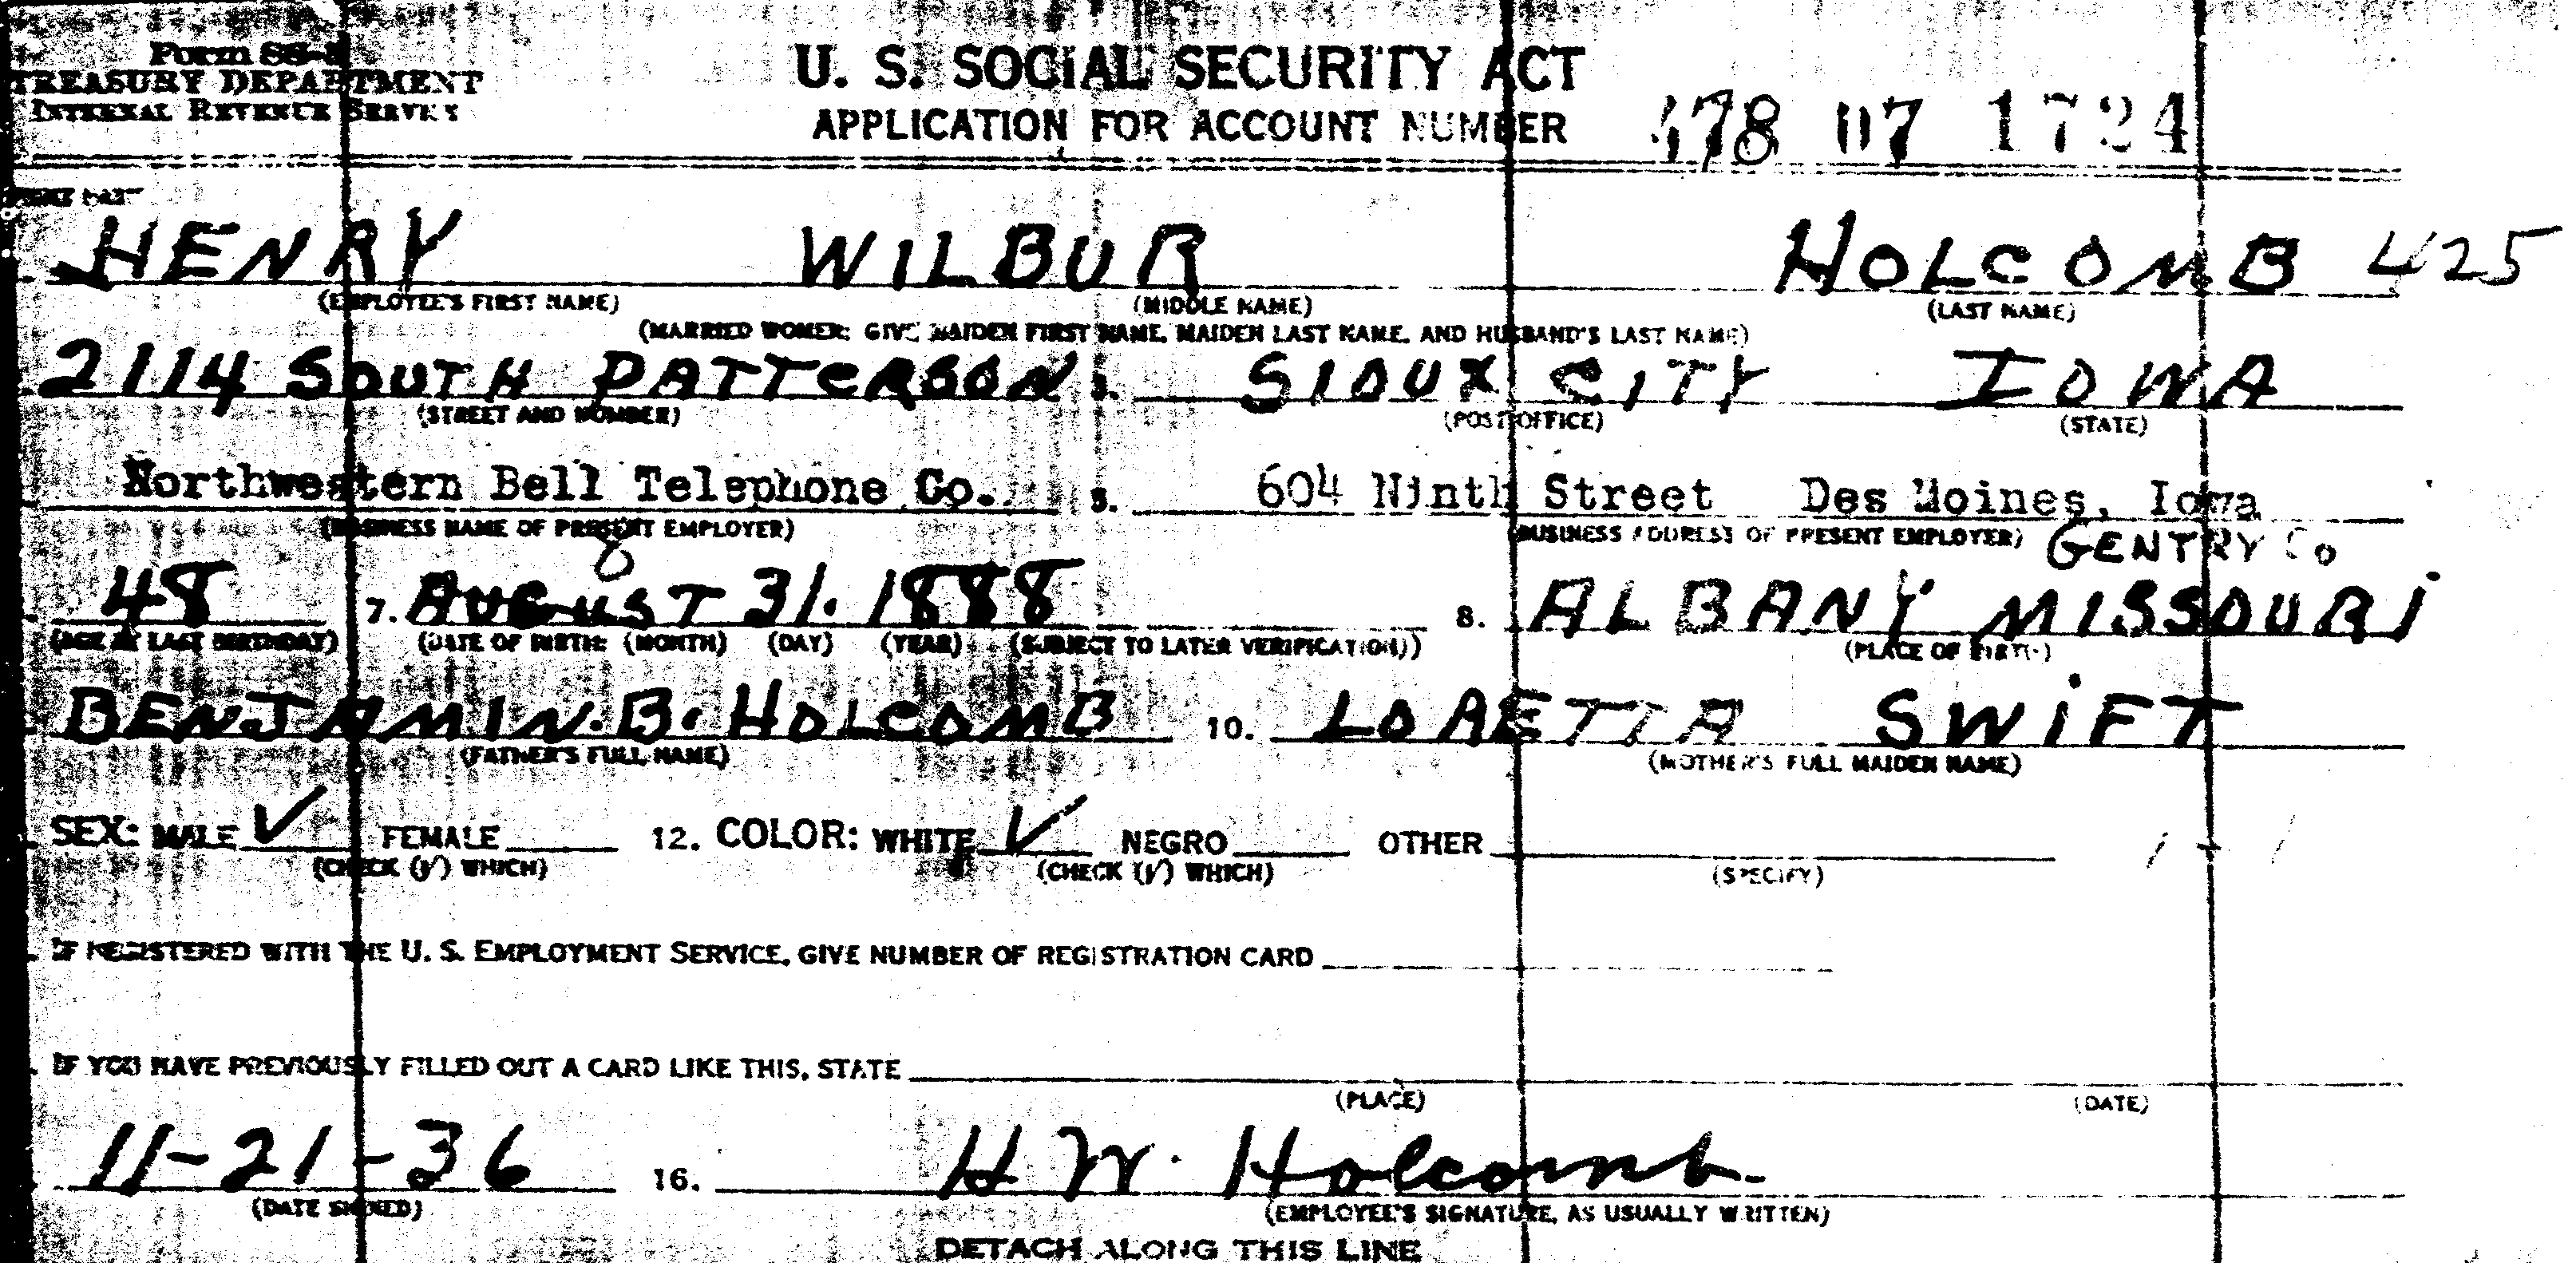 Form SS-5
TREASURY DEPARTMENT
INTERNAL REVENUE SERVICE
U. S. SOCIAL SECURITY ACT
APPLICATION FOR ACCOUNT NUMBER
478 07 1724
HENRY WILBUR HOLCOMB 425
(EMPLOYEE'S FIRST NAME) (MIDDLE NAME) (LAST NAME)
(MARRIED WOMEN: GIVE MAIDEN FIRST NAME, MAIDEN LAST NAME, AND HUSBAND'S LAST NAME)
2114 SOUTH PATTERSON 3. SIOUX CITY IOWA
(STREET AND NUMBER) (POST OFFICE) (STATE)
Northwestern Bell Telephone Co. 5. 604 Ninth Street Des Moines, Iowa
(BUSINESS NAME OF PRESENT EMPLOYER) (BUSINESS ADDRESS OF PRESENT EMPLOYER) GENTRY Co
8
48 7. AUGUST 31. 1888 8. ALBANY MISSOURI
(AGE AT LAST BIRTHDAY) (DATE OF BIRTH: (MONTH) (DAY) (YEAR) (SUBJECT TO LATER VERIFICATION)) (PLACE OF BIRTH)
BENJAMIN.B.HOLCOMB 10. LORETTA SWIFT
(FATHER'S FULL NAME) (MOTHER'S FULL MAIDEN NAME)
SEX: MALE ✓ FEMALE 12. COLOR: WHITE ✓ NEGRO OTHER
(CHECK (✓) WHICH) (CHECK (✓) WHICH) (SPECIFY)
IF REGISTERED WITH THE U. S. EMPLOYMENT SERVICE, GIVE NUMBER OF REGISTRATION CARD
IF YOU HAVE PREVIOUSLY FILLED OUT A CARD LIKE THIS, STATE
(PLACE) (DATE)
11-21-36 16. H W. Holcomb
(DATE SIGNED) (EMPLOYEE'S SIGNATURE, AS USUALLY WRITTEN)
DETACH ALONG THIS LINE